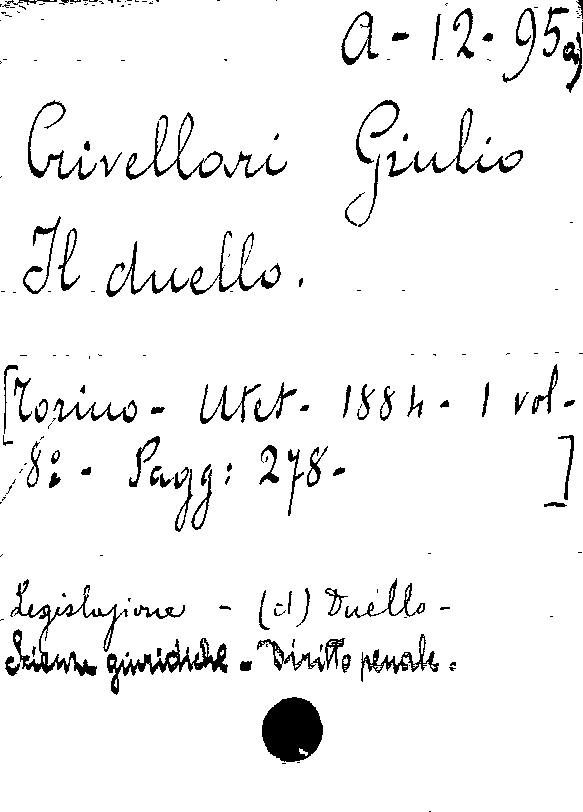 A-12-95a)
Crivellari Giulio
Il duello.
[Torino - Utet - 1884 - 1 vol -
8º - Pagg: 278 - ]
Legislazione - (d) Duello -
Scienze giuridiche - Diritto penale.